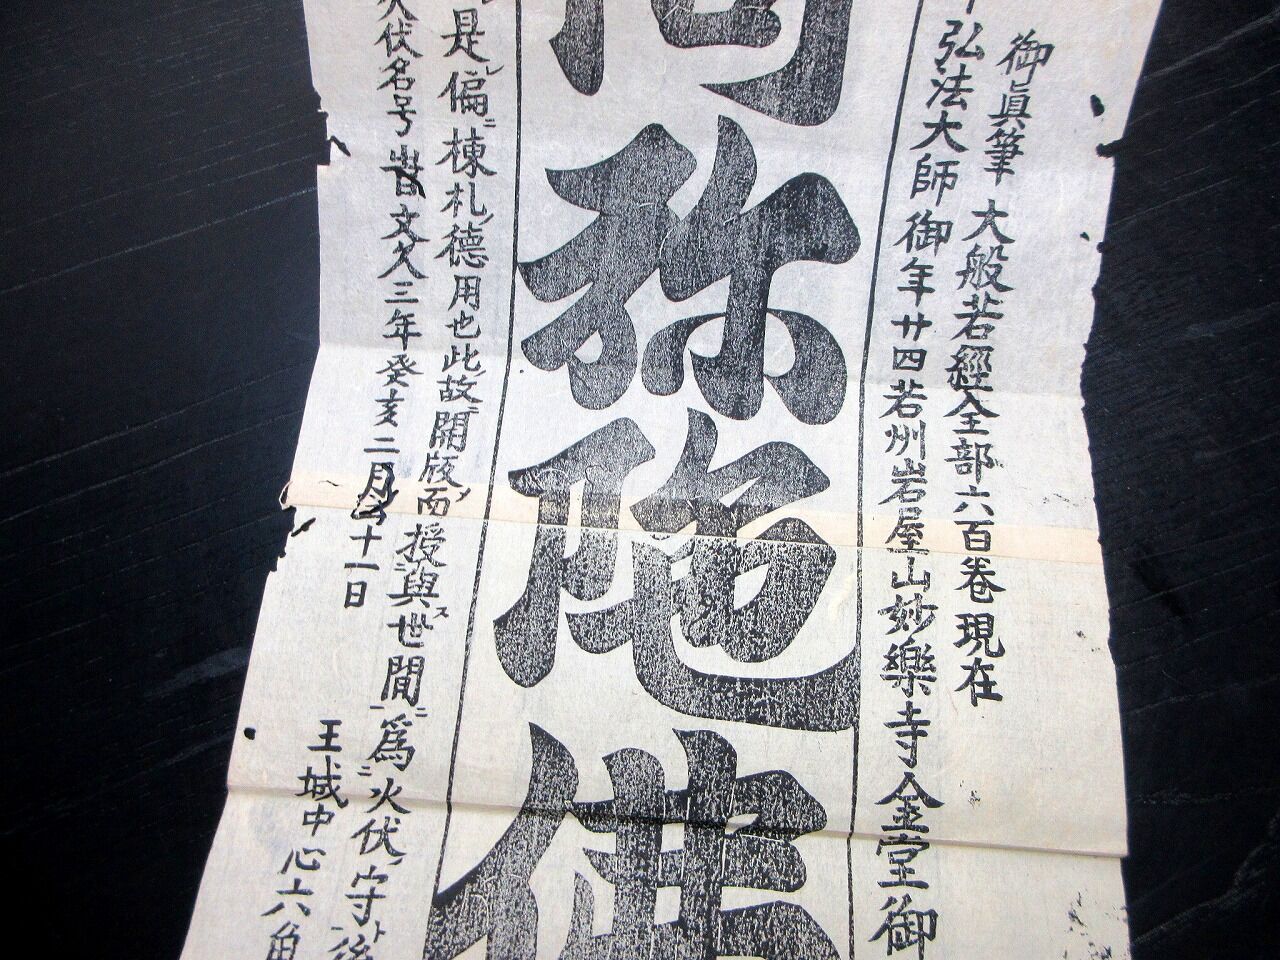 御眞筆 大般若經全部六百卷現在
弘法大師御年廿四若州岩屋山妙樂寺金堂御
阿弥陀佛
是偏ニ棟札ノ德用也此故ニ開版而メ授與ス世間ニ爲ニ火伏守ト後
火伏名号 文久三年癸亥二月 十一日
王城中心六角